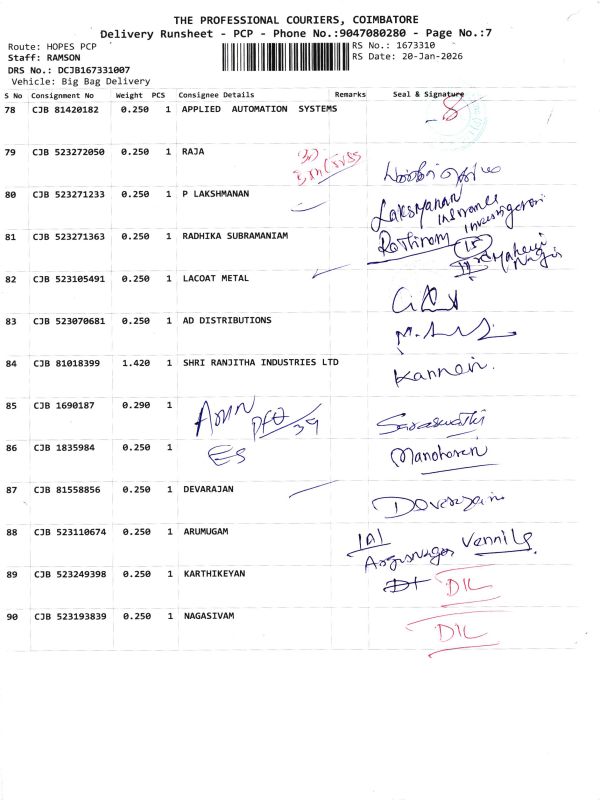 THE PROFESSIONAL COURIERS, COIMBATORE
Delivery Runsheet - PCP - Phone No.:9047080280 - Page No.:7
Route: HOPES PCP RS No.: 1673310
Staff: RAMSON RS Date: 20-Jan-2026
DRS No.: DCJB167331007
Vehicle: Big Bag Delivery
S No Consignment No Weight PCS Consignee Details Remarks Seal & Signature
78 CJB 81420182 0.250 1 APPLIED AUTOMATION SYSTEMS
79 CJB 523272050 0.250 1 RAJA
80 CJB 523271233 0.250 1 P LAKSHMANAN Laksmanan
Insurance
81 CJB 523271363 0.250 1 RADHIKA SUBRAMANIAM
82 CJB 523105491 0.250 1 LACOAT METAL
83 CJB 523070681 0.250 1 AD DISTRIBUTIONS
84 CJB 81018399 1.420 1 SHRI RANJITHA INDUSTRIES LTD Kannan.
85 CJB 1690187 0.290 1 Saraswathi
86 CJB 1835984 0.250 1 ES Manoharan
87 CJB 81558856 0.250 1 DEVARAJAN
88 CJB 523110674 0.250 1 ARUMUGAM Vennila
89 CJB 523249398 0.250 1 KARTHIKEYAN DIL
90 CJB 523193839 0.250 1 NAGASIVAM DIL